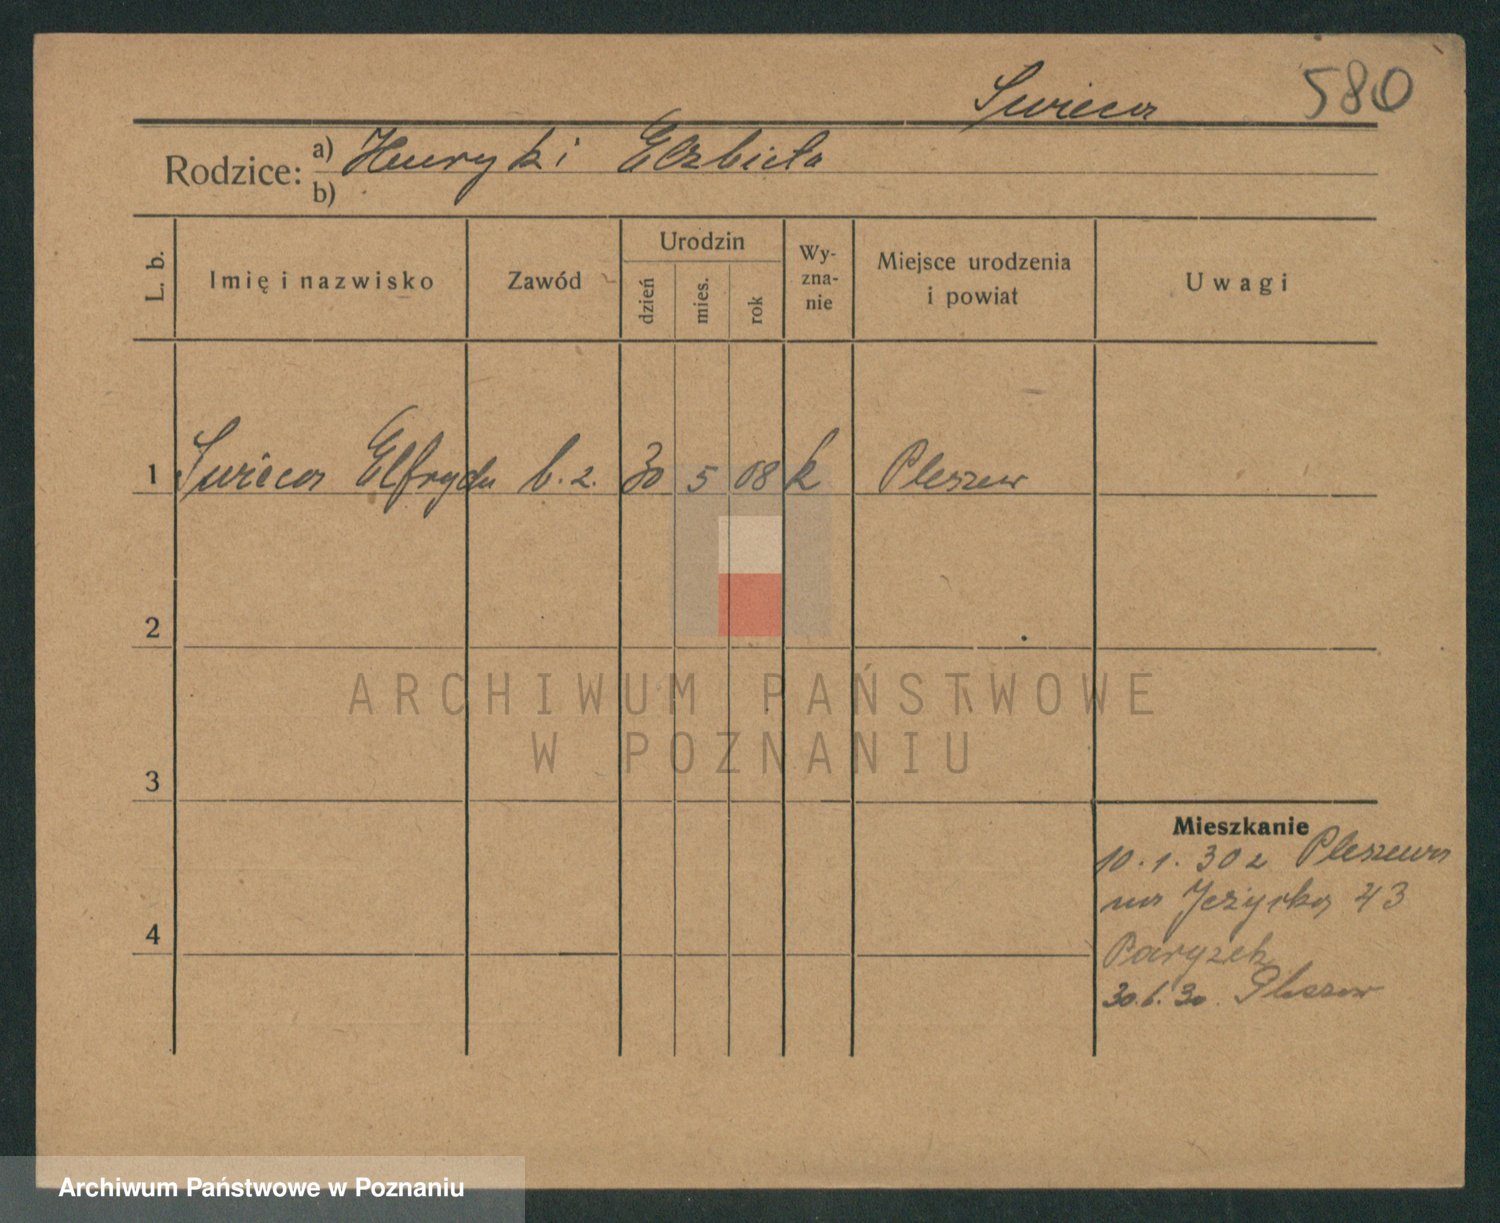 580
Swieca
Rodzice: a) Henryk i Elzbieta
b)
L. b.
Imię i nazwisko
Zawód
Urodzin
dzień
mies.
rok
Wy-
zna-
nie
Miejsce urodzenia
i powiat
Uwagi
1 Swieca Elfryda b. z. 30 5 08 k Pleszew
2
3
4
Mieszkanie
10.1.30 z Pleszewa
na Jeżycka 43
Paryzek
30.6.30. Pleszew
ARCHIWUM PAŃSTWOWE
W POZNANIU
Archiwum Państwowe w Poznaniu